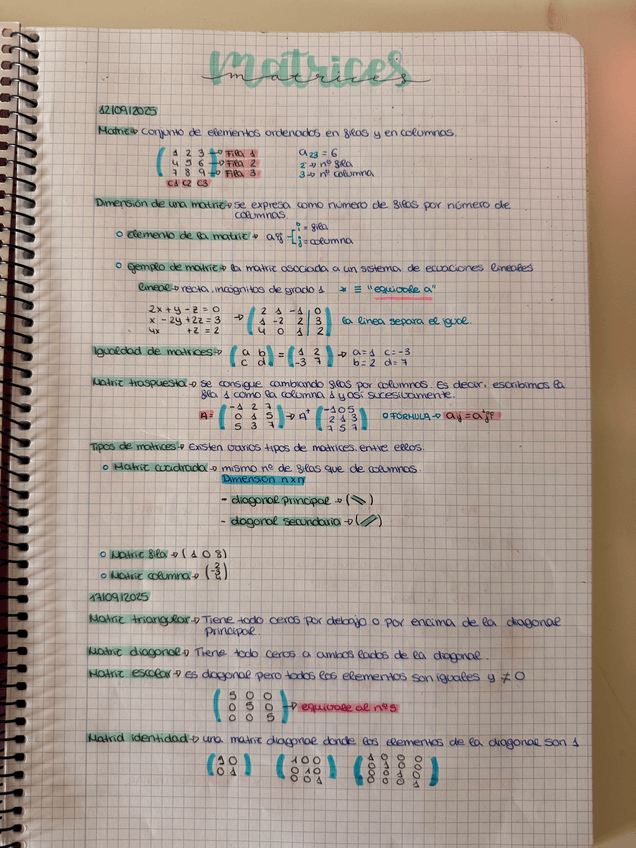 matrices
matrices
12/09/2025
Matriz → conjunto de elementos ordenados en filas y en columnas.
1 2 3 → Fila 1 a23 = 6
4 5 6 → Fila 2 2 → nº fila
7 8 9 → Fila 3 3 → nº columna
C1 C2 C3
Dimensión de una matriz → se expresa como número de filas por número de
columnas.
○ Elemento de la matriz → aij { i = fila
j = columna
○ Ejemplo de matriz → la matriz asociada a un sistema de ecuaciones lineales
lineal → recta, incógnitas de grado 1 * ≡ "equivale a"
2x + y - z = 0 2 1 -1 | 0
x - 2y + 2z = 3 → 1 -2 2 | 3 la línea separa el igual.
4x + z = 2 4 0 1 | 2
Igualdad de matrices → ( a b ) = ( 1 2 ) → a = 1 c = -3
c d -3 7 b = 2 d = 7
Matriz traspuesta → se consigue cambiando filas por columnas. Es decir, escribimos la
fila 1 como la columna 1 y así sucesivamente.
-1 2 7 -1 0 5
A = 0 1 5 → At 2 1 3 ○ FÓRMULA →
5 3 7 7 5 7
Tipos de matrices → Existen varios tipos de matrices, entre ellos:
○ Matriz cuadrada → mismo nº de filas que de columnas.
Dimensión nxn
- diagonal principal → (\\)
- diagonal secundaria → (//)
○ Matriz fila → (1 0 8)
○ Matriz columna →
17/09/2025
Matriz triangular → Tiene todo ceros por debajo o por encima de la diagonal
principal
Matriz diagonal → Tiene todo ceros a ambos lados de la diagonal.
Matriz escalar → es diagonal pero todos los elementos son iguales y ≠ 0
5 0 0
0 5 0 → equivale al nº 5
0 0 5
Matriz identidad → una matriz diagonal donde los elementos de la diagonal son 1
1 0 1 0 0 1 0 0 0
0 1 0 1 0 0 1 0 0
0 0 1 0 0 1 0
0 0 0 1